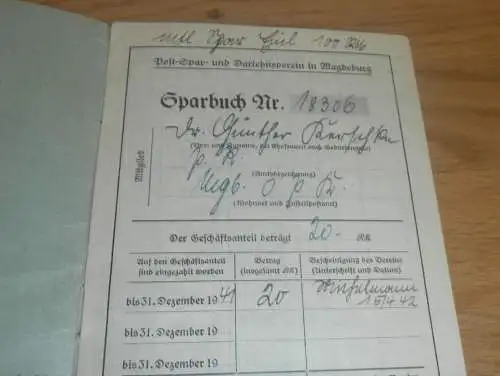 mtl Spar 100 RM
Post-Spar- und Darlehnsverein in Magdeburg
Sparbuch Nr. 18306
Dr. Günther
(Vor- und Zuname, bei Ehefrauen auch Geburtsname)
P. R.
(Amtsbezeichnung)
Mgb. O P K.
(Wohnort und Zustellpostamt)
Mitglied
Der Geschäftsanteil beträgt 20.- RM
Auf den Geschäftsanteil sind eingezahlt worden
Betrag (insgesamt RM)
Bescheinigung des Vereins (Unterschrift und Datum)
bis 31. Dezember 1941 20 15/4 42
bis 31. Dezember 19
bis 31. Dezember 19